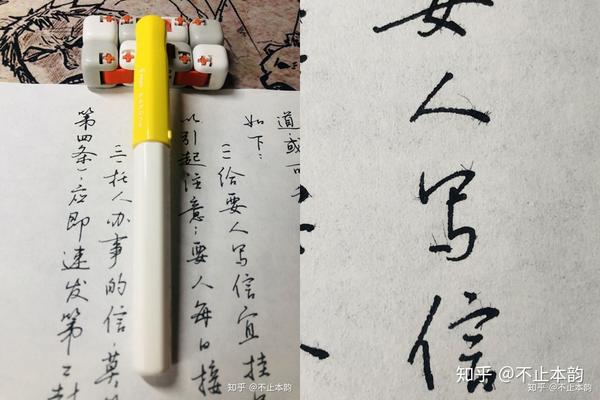 道:或
如下:
(一)给要人写信宜挂
以引起注意;要人每日接
托人办事的信,莫
第四条),应即速发第二封
知乎 @不止本韵
人写信
知乎 @不止本韵
知乎 @不止本韵